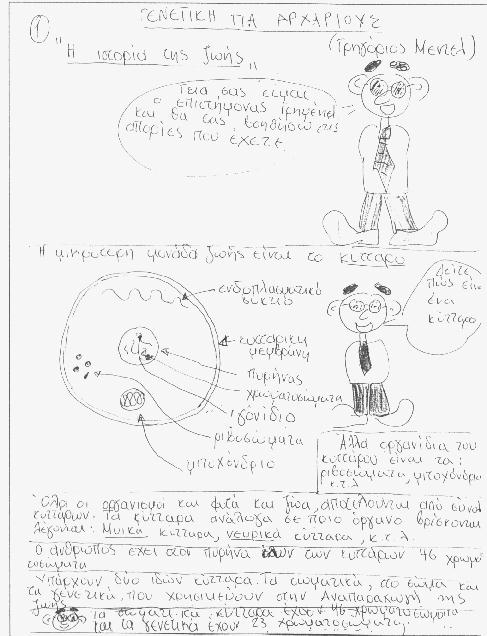 ΓΕΝΕΤΙΚΗ ΓΙΑ ΑΡΧΑΡΙΟΥΣ
1
"Η ιστορία της ζωής"
(Γρηγόριος Μέντελ)
Γεια σας είμαι
ο επιστήμονας
και θα σας βοηθήσω στις
απορίες που έχετε.
Η μικρότερη μονάδα ζωής είναι το κύτταρο
ενδοπλασματικό
δίκτυο
κυτταρική
μεμβράνη
πυρήνας
χρωματοσώματα
γονίδιο
ριβοσώματα
μιτοχόνδριο
Δείτε
πως είναι
ένα
κύτταρο
Άλλα οργανίδια του
κυττάρου είναι τα:
ριβοσώματα, μιτοχόνδρια
κ.τ.λ
Όλοι οι οργανισμοί και φυτά και ζώα, αποτελούνται από
κυττάρων. Τα κύτταρα ανάλογα σε ποιο όργανο βρίσκονται
λέγονται: Μυικά κύτταρα, νευρικά κύτταρα, κ.τ.λ.
Ο άνθρωπος έχει στον πυρήνα των κυττάρων 46 χρωμο
σώματα
Υπάρχουν δυο ιδών κύτταρα. Τα σωματικά, στο σώμα και
τα γενετικά, που χρησιμεύουν στην Αναπαραγωγή της
ζωής
Τα σωματικά κύτταρα έχουν 46 χρωματοσώματα
και τα γενετικά έχουν 23 χρωματοσώματα.